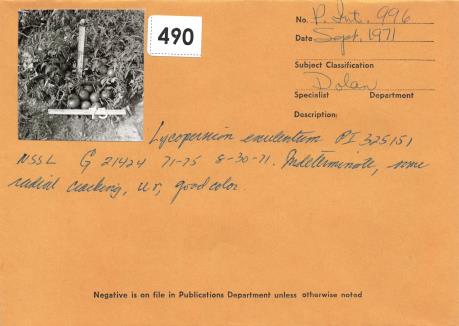 490
No. P. Int. 996
Date Sept. 1971
Subject Classification
Dolan
Specialist Department
Description:
Lycopersicon esculentum PI 325151
NSSL G 21424 71-75 8-30-71. Indeterminate, some
radial cracking, ur, good color.
Negative is on file in Publications Department unless otherwise noted